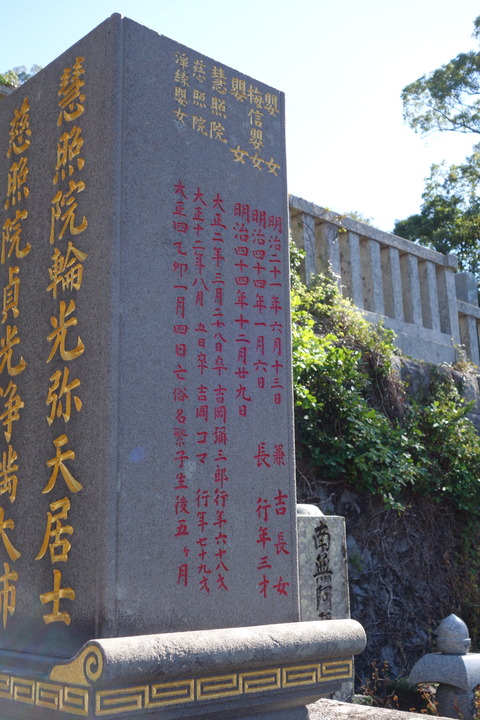 嬰女 明治二十一年六月十三日 兼吉長女
梅信嬰女 明治四十四年一月六日 長 行年三才
嬰女 明治四十四年十二月廿九日
慧照院 大正二年三月二十八日卒 吉岡彌三郎行年六十八才
慈照院 大正十二年八月五日卒 吉岡コマ 行年七十九才
嬰女 大正四乙卯一月四日亡俗名繁子生後五ヶ月
慧照院輪光弥天居士
慈照院貞光浄
大姉
南無阿